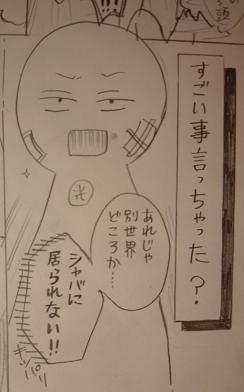 すごい事言っちゃった？
あれじゃ
別世界
どころか…
シャバに
居られない!!
キッパリ